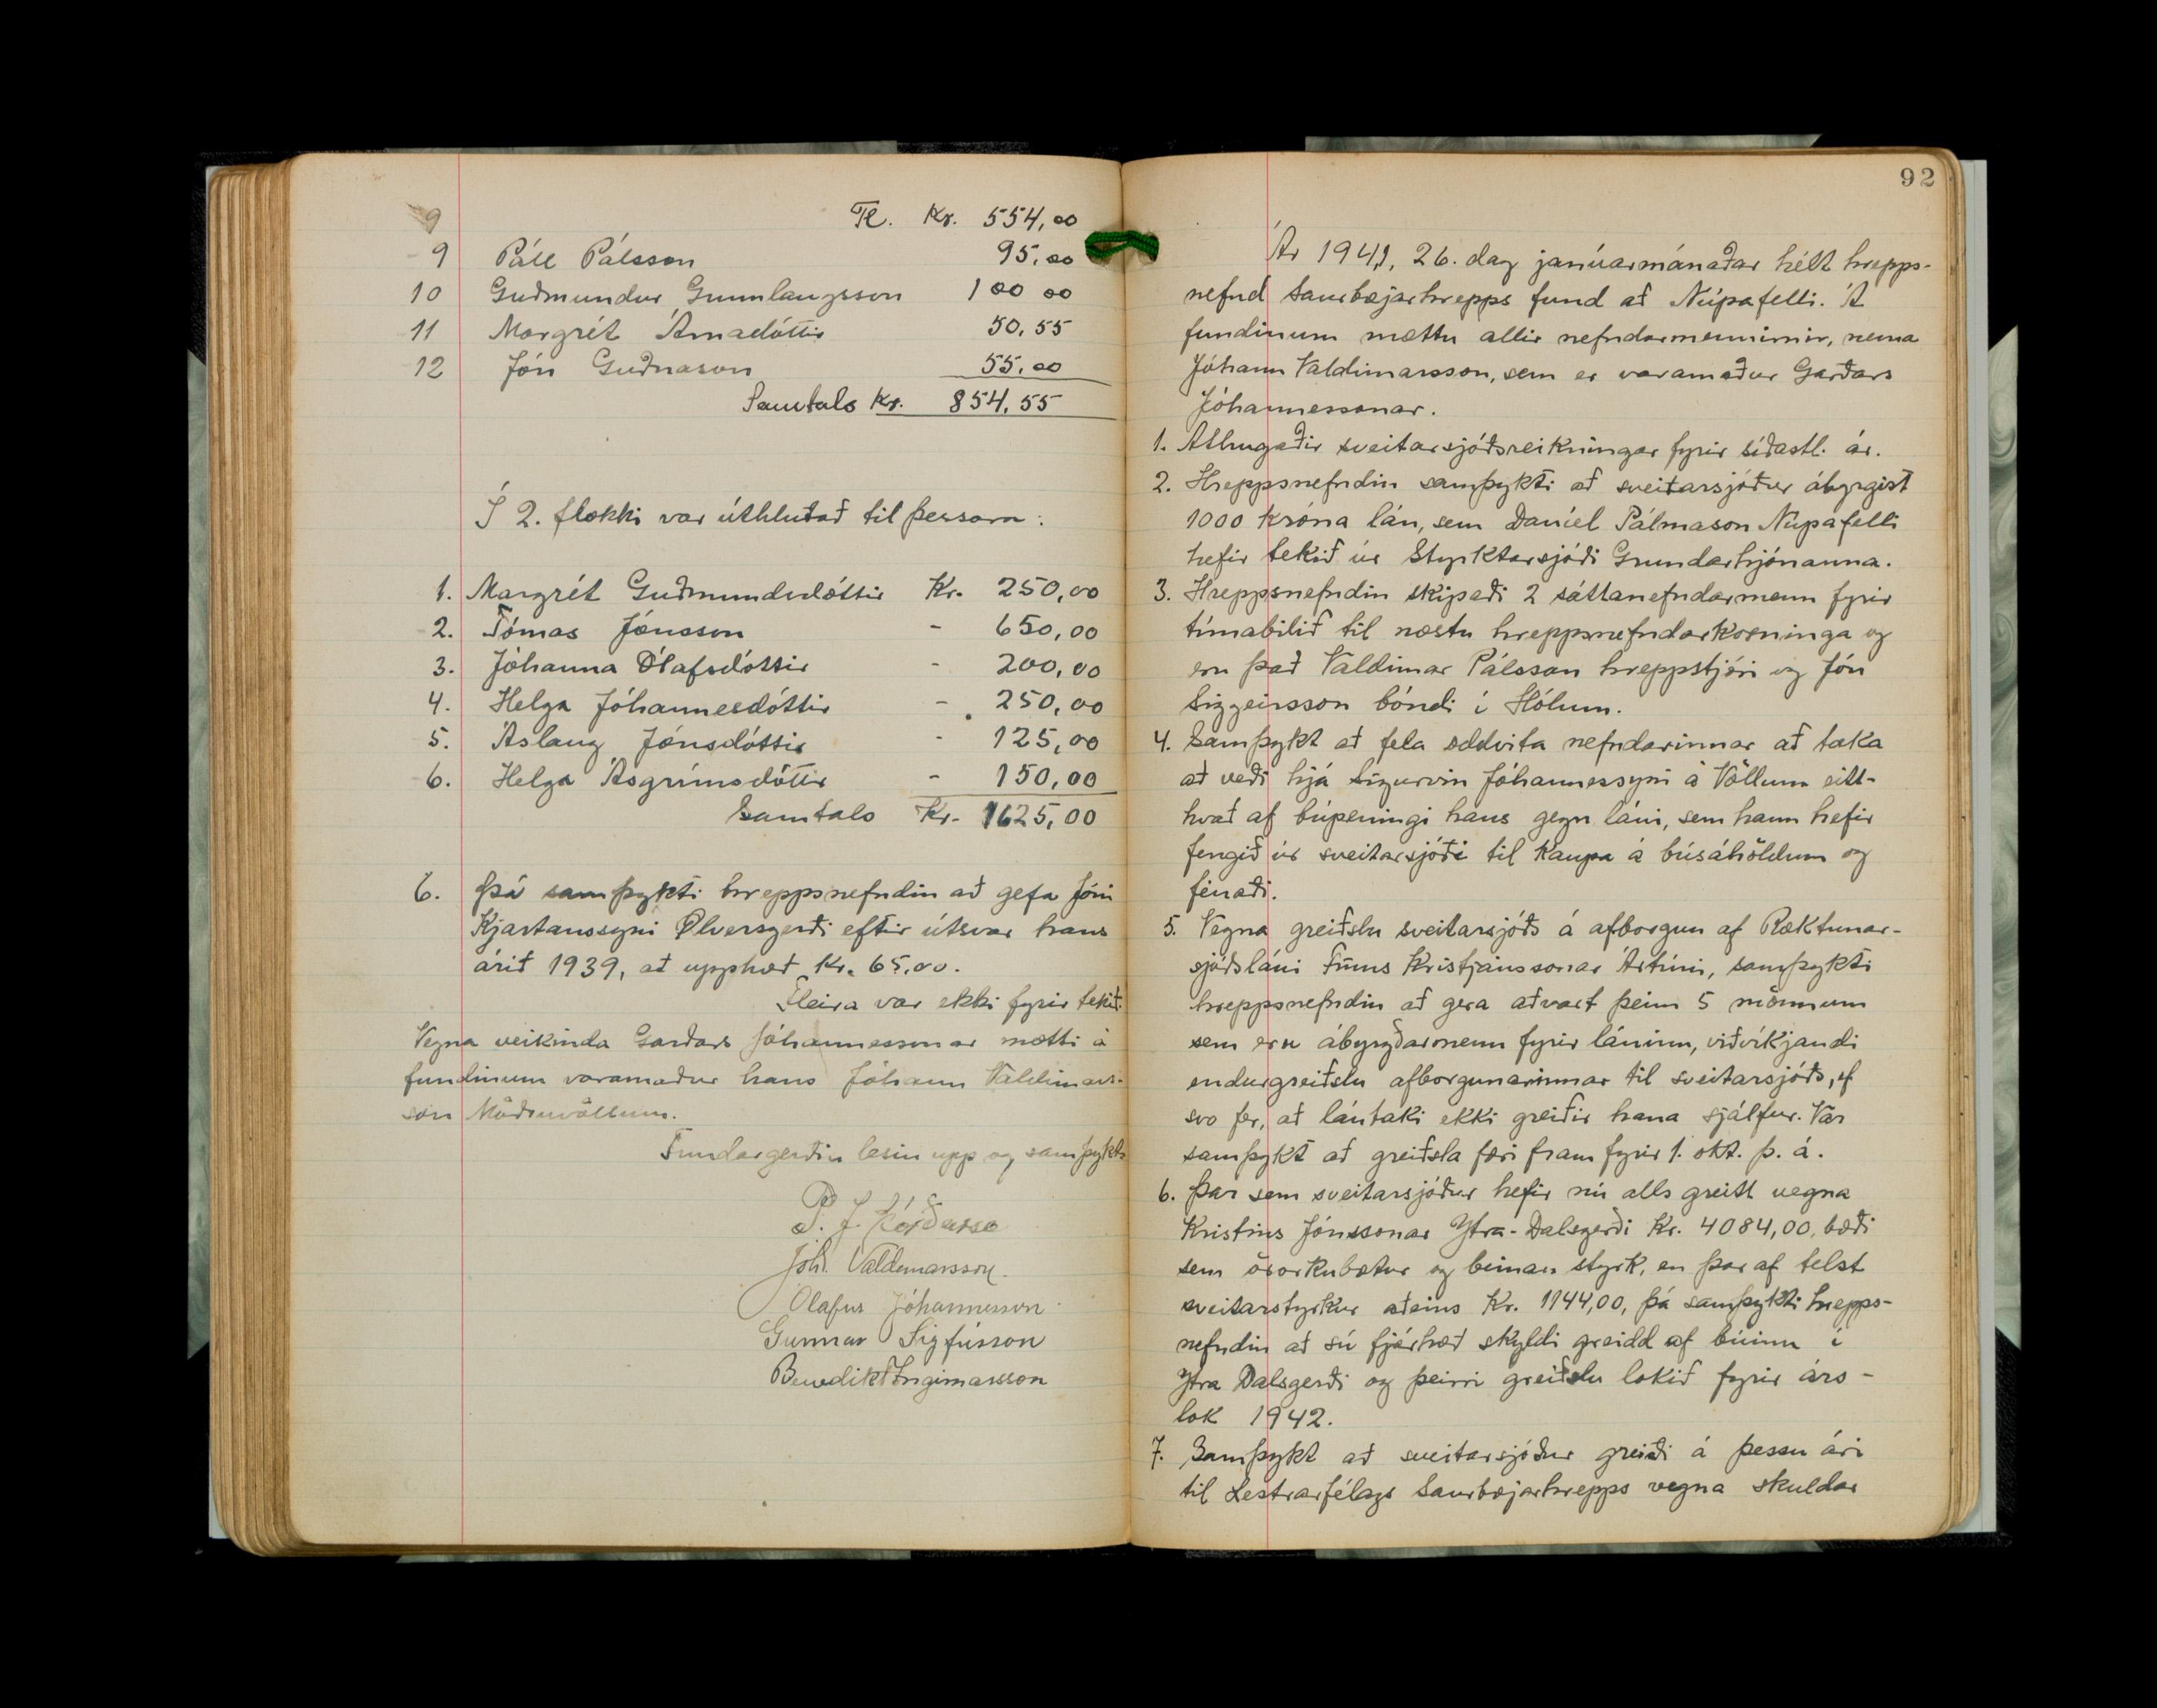 9
Fl. Kr. 554,00
9 Páll Pálsson 95,00
10 Guðmundur Gunnlaugsson 100 00
11 Margrét Árnadóttir 50,55
12 Jón Guðnason 55,00
Samtals Kr. 854,55
Í 2. flokki var úthlutað til þessara:
1. Margrét Guðmundsdóttir Kr. 250,00
2. Tómas Jónsson - 650,00
3. Jóhanna Ólafsdóttir - 200,00
4. Helga Jóhannesdóttir - 250,00
5. Áslaug Jónsdóttir - 125,00
6. Helga Ásgrímsdóttir - 150,00
Samtals Kr. 1625,00
6. Þá samþykti hreppsnefndin að gefa Jóni
Kjartanssyni Ölversgerði eftir útsvar hans
árið 1939, að upphæð Kr. 65,00.
Fleira var ekki fyrir tekið.
Vegna veikinda Garðars Jóhannessonar mætti á
fundinum varamaður hans Jóhann Valdimars-
son Möðruvöllum.
Fundargerðin lesin upp og samþykt.
P. J. Þórðarso
Jóh. Valdemarsson.
Ólafur Jóhannesson
Gunnar Sigfússon
Benedikt Ingimarsson
92
Ár 1941, 26. dag janúarmánaðar hélt hrepps-
nefnd Saurbæjarhrepps fund að Núpafelli. Á
fundinum mættu allir nefndarmennirnir, nema
Jóhann Valdimarsson, sem er varamaður Garðars
Jóhannessonar.
1. Athugaðir sveitarsjóðsreikningar fyrir síðastl. ár.
2. Hreppsnefndin samþykti að sveitarsjóður ábyrgist
1000 króna lán, sem Daníel Pálmason Núpafelli
hefir tekið úr Styrktarsjóði Grundarhjónanna.
3. Hreppsnefndin skipaði 2 sáttanefndarmenn fyrir
tímabilið til næstu hreppsnefndarkosninga og
eru það Valdimar Pálsson hreppstjóri og Jón
Siggeirsson bóndi í Hólum.
4. Samþykt að fela oddvita nefndarinnar að taka
að veði hjá Sigurvin Jóhannessyni á Völlum eitt-
hvað af búpeningi hans gegn láni, sem hann hefir
fengið úr sveitarsjóði til kaupa á búsáhöldum og
fénaði.
5. Vegna greiðslu sveitarsjóðs á afborgun af Ræktunar-
sjóðsláni Finns Kristjánssonar Ártúni, samþykti
hreppsnefndin að gera aðvart þeim 5 mönnum
sem eru ábyrgðarmenn fyrir láninu, viðvíkjandi
endurgreiðslu afborgunarinnar til sveitarsjóðs, ef
svo fer, að lántaki ekki greiðir hana sjálfur. Var
samþykt að greiðsla færi fram fyrir 1. okt. þ. á.
6. Þar sem sveitarsjóður hefir nú alls greitt vegna
Kristins Jónssonar Ytra-Dalsgerði Kr. 4084,00, bæði
sem örorkubætur og beinan styrk, en þar af telst
sveitarstyrkur aðeins Kr. 1144,00, þá samþykti hrepps-
nefndin að sú fjárhæð skyldi greidd af búinu í
Ytra Dalsgerði og þeirri greiðslu lokið fyrir árs-
lok 1942.
7. Samþykt að sveitarsjóður greiði á þessu ári
til Lestrarfélags Saurbæjarhrepps vegna skuldar